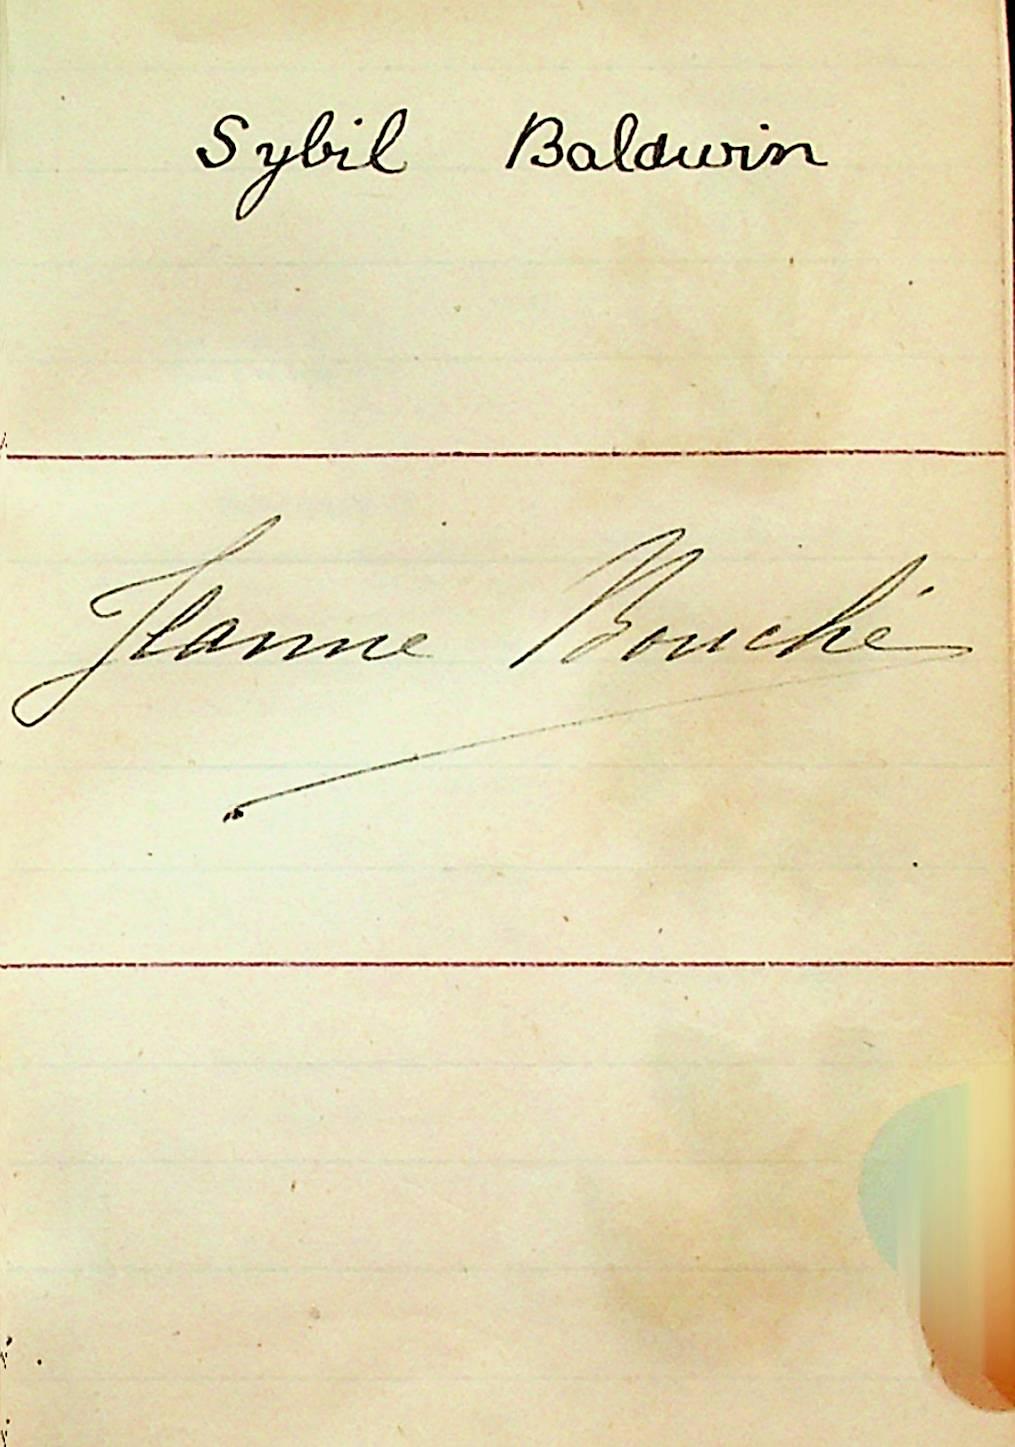 Sybil Baldwin
Jeanne Bouché